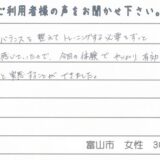 ご利用者様の声をお聞かせ下さい。
バランスを整えてトレーニングする必要をずっと
感じていたので、今回の体験でやはり有効
と実感することができました。
富山市 女性 30